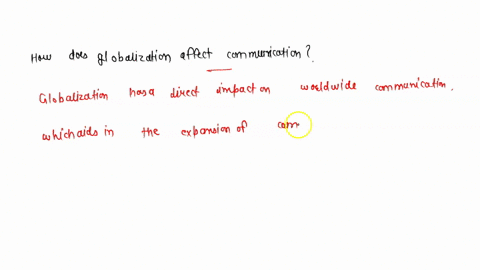 How does globalization affect communication?
Globalization has a direct impact on worldwide communication.
which aids in the expansion of com